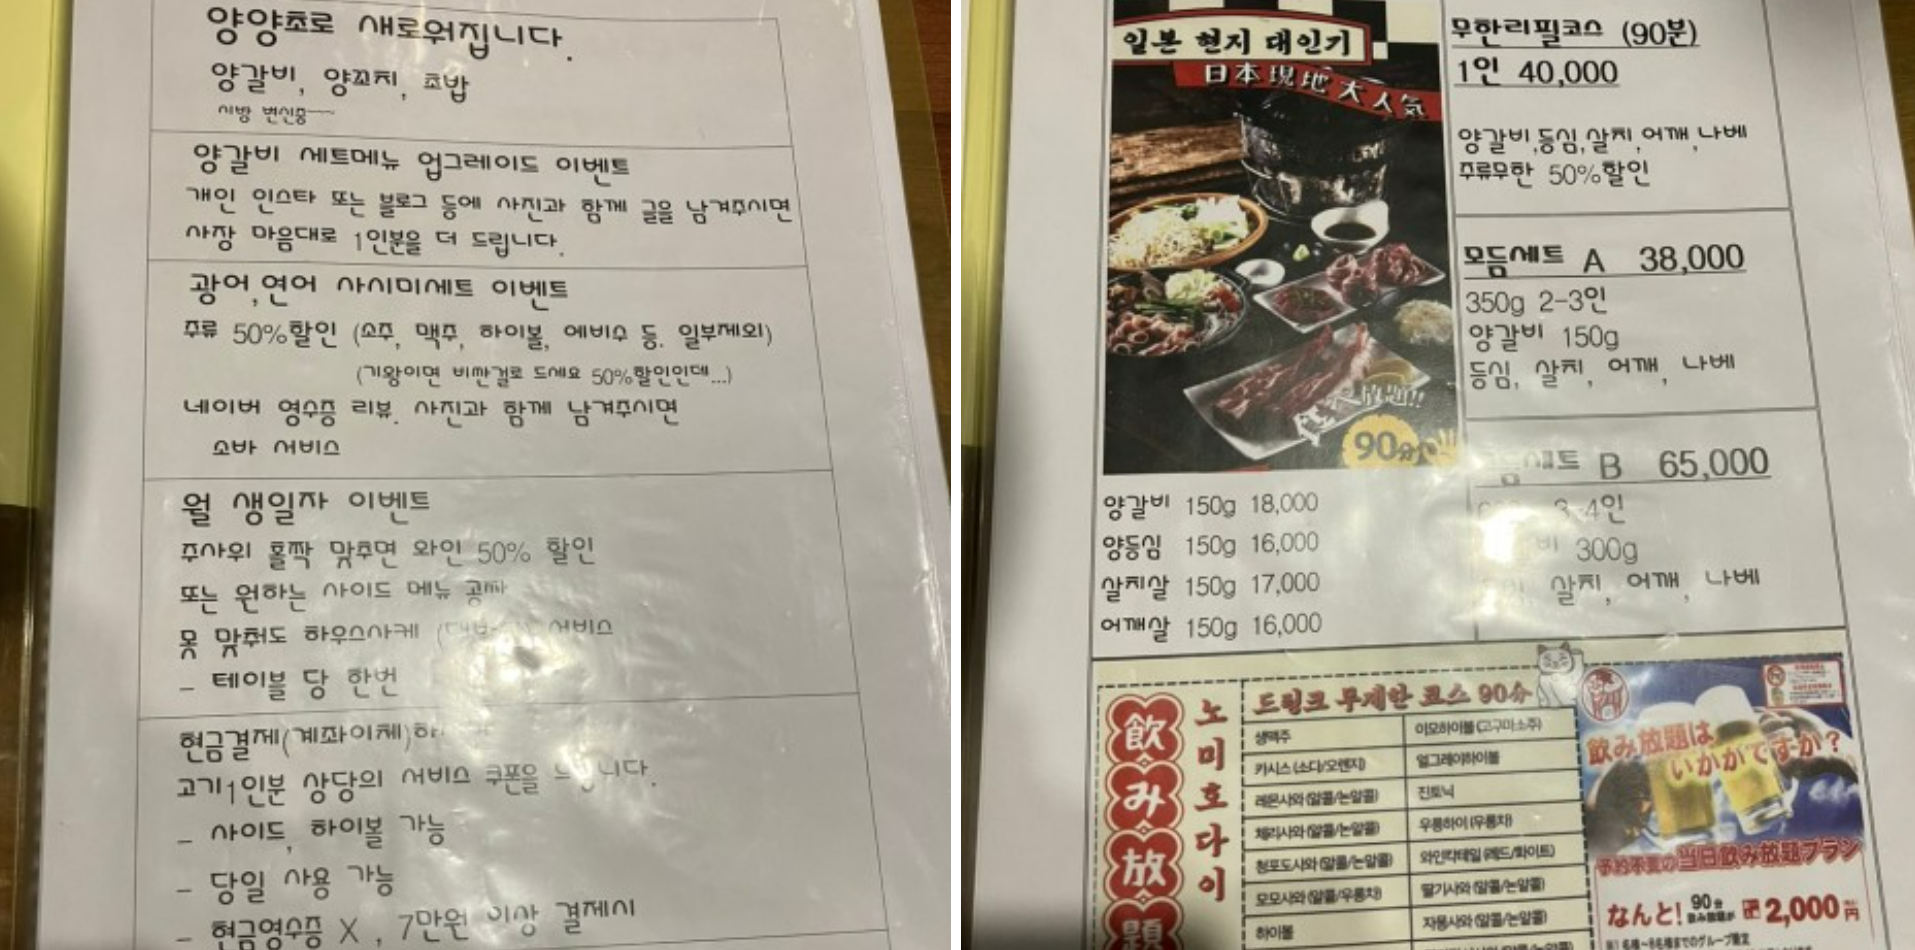 양양초로 새로워집니다.
양갈비, 양꼬치, 초밥
시방 변신중~~
양갈비 세트메뉴 업그레이드 이벤트
개인 인스타 또는 블로그 등에 사진과 함께 글을 남겨주시면
사장 마음대로 1인분을 더 드립니다.
광어,연어 사시미세트 이벤트
주류 50%할인 (소주, 맥주, 하이볼, 에비수 등. 일부제외)
(기왕이면 비싼걸로 드세요 50%할인인데...)
네이버 영수증 리뷰. 사진과 함께 남겨주시면
소바 서비스
월 생일자 이벤트
주사위 홀짝 맞추면 와인 50% 할인
또는 원하는 사이드 메뉴 공짜
못 맞춰도 하우스사케 서비스
- 테이블 당 한번
현금결제(계좌이체)
고기1인분 상당의 서비스 쿠폰을
- 사이드, 하이볼 가능
- 당일 사용 가능
- 현금영수증 X , 7만원 이상 결제시
일본 현지 대인기
日本現地大人気
90分
양갈비 150g 18,000
양등심 150g 16,000
살치살 150g 17,000
어깨살 150g 16,000
무한리필코스 (90분)
1인 40,000
양갈비,등심,살치,어깨,나베
주류무한 50%할인
모듬세트 A 38,000
350g 2-3인
양갈비 150g
등심, 살치, 어깨, 나베
세트 B 65,000
3-4인
300g
살치, 어깨, 나베
飲み放題
노미호다이
드링크 무제한 코스 90分
생맥주
이모하이볼 (고구마소주)
카시스 (소다/오렌지)
얼그레이하이볼
레몬사와 (알콜/논알콜)
진토닉
체리사와 (알콜/논알콜)
우롱하이 (우롱차)
청포도사와 (알콜/논알콜)
와인칵테일 (레드/화이트)
모모사와 (알콜/우롱차)
딸기사와 (알콜/논알콜)
하이볼
자몽사와 (알콜/논알콜)
飲み放題は
いかがですか?
予約不要の当日飲み放題プラン
なんと! 90分 飲み放題が 2,000円